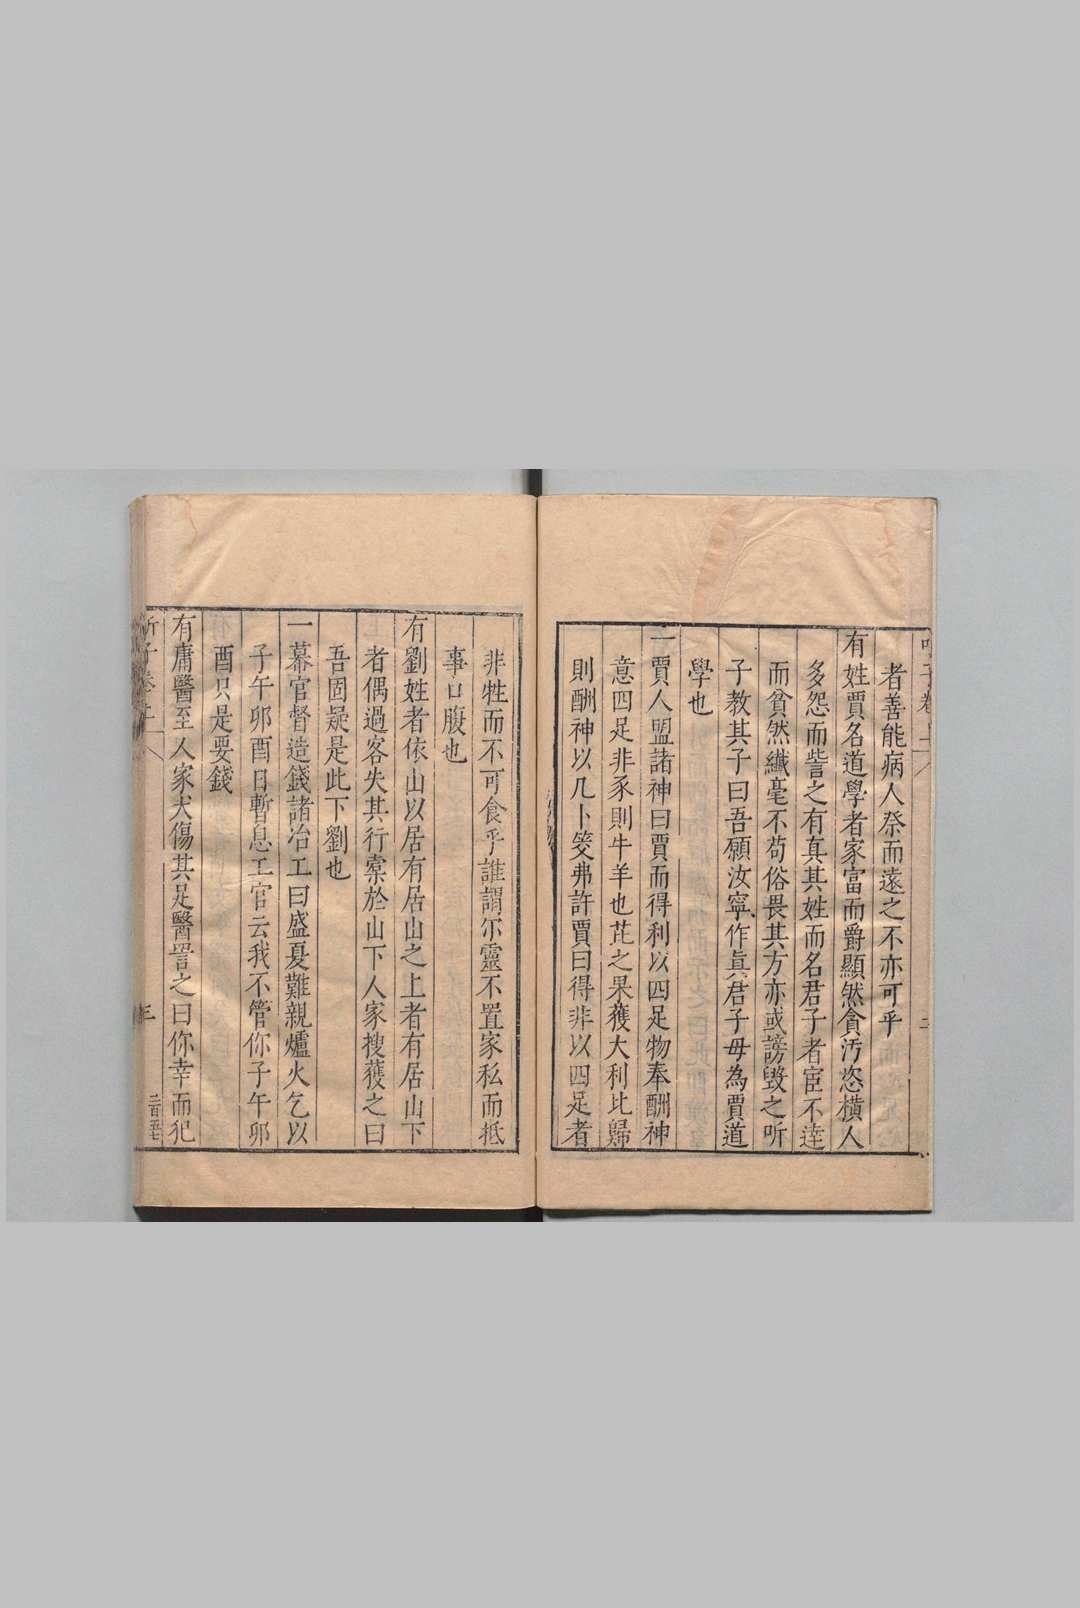 者善能病人祭而遠之不亦可乎
有姓賈名道學者家富而爵顯然貪汚恣橫人
多怨而訾之有真其姓而名君子者宦不達
而貧然纎毫不苟俗畏其方亦或謗毀之所
子教其子曰吾願汝寧作眞君子毋為賈道
學也
一賈人盟諸神曰賈而得利以四足物奉酬神
意四足非豕則牛羊也芘之果獲大利比歸
則酬神以几卜筊弗許賈曰得非以四足者
非牲而不可食乎誰謂尔靈不置家私而抵
事口腹也
有劉姓者依山以居有居山之上者有居山下
者偶過客失其行橐於山下人家搜獲之曰
吾固疑是此下劉也
一幕官督造錢諸冶工曰盛夏難親爐火乞以
子午卯酉日暫息工官云我不管你子午卯
酉只是要錢
有庸醫至人家犬傷其足醫詈之曰你幸而犯
子卷上
三
二百五七